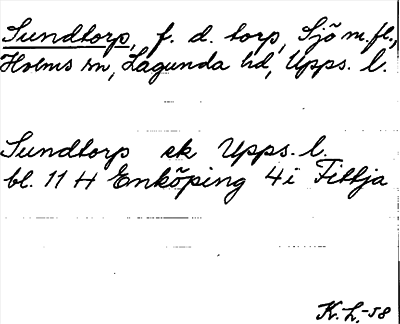 Sundtorp, f. d. torp, Sjö m.fl.,
Holms sn, Lagunda hd, Upps. l.
Sundtorp ek Upps. l.
bl. 11 H Enköping 4i Fittja
K. L. -58